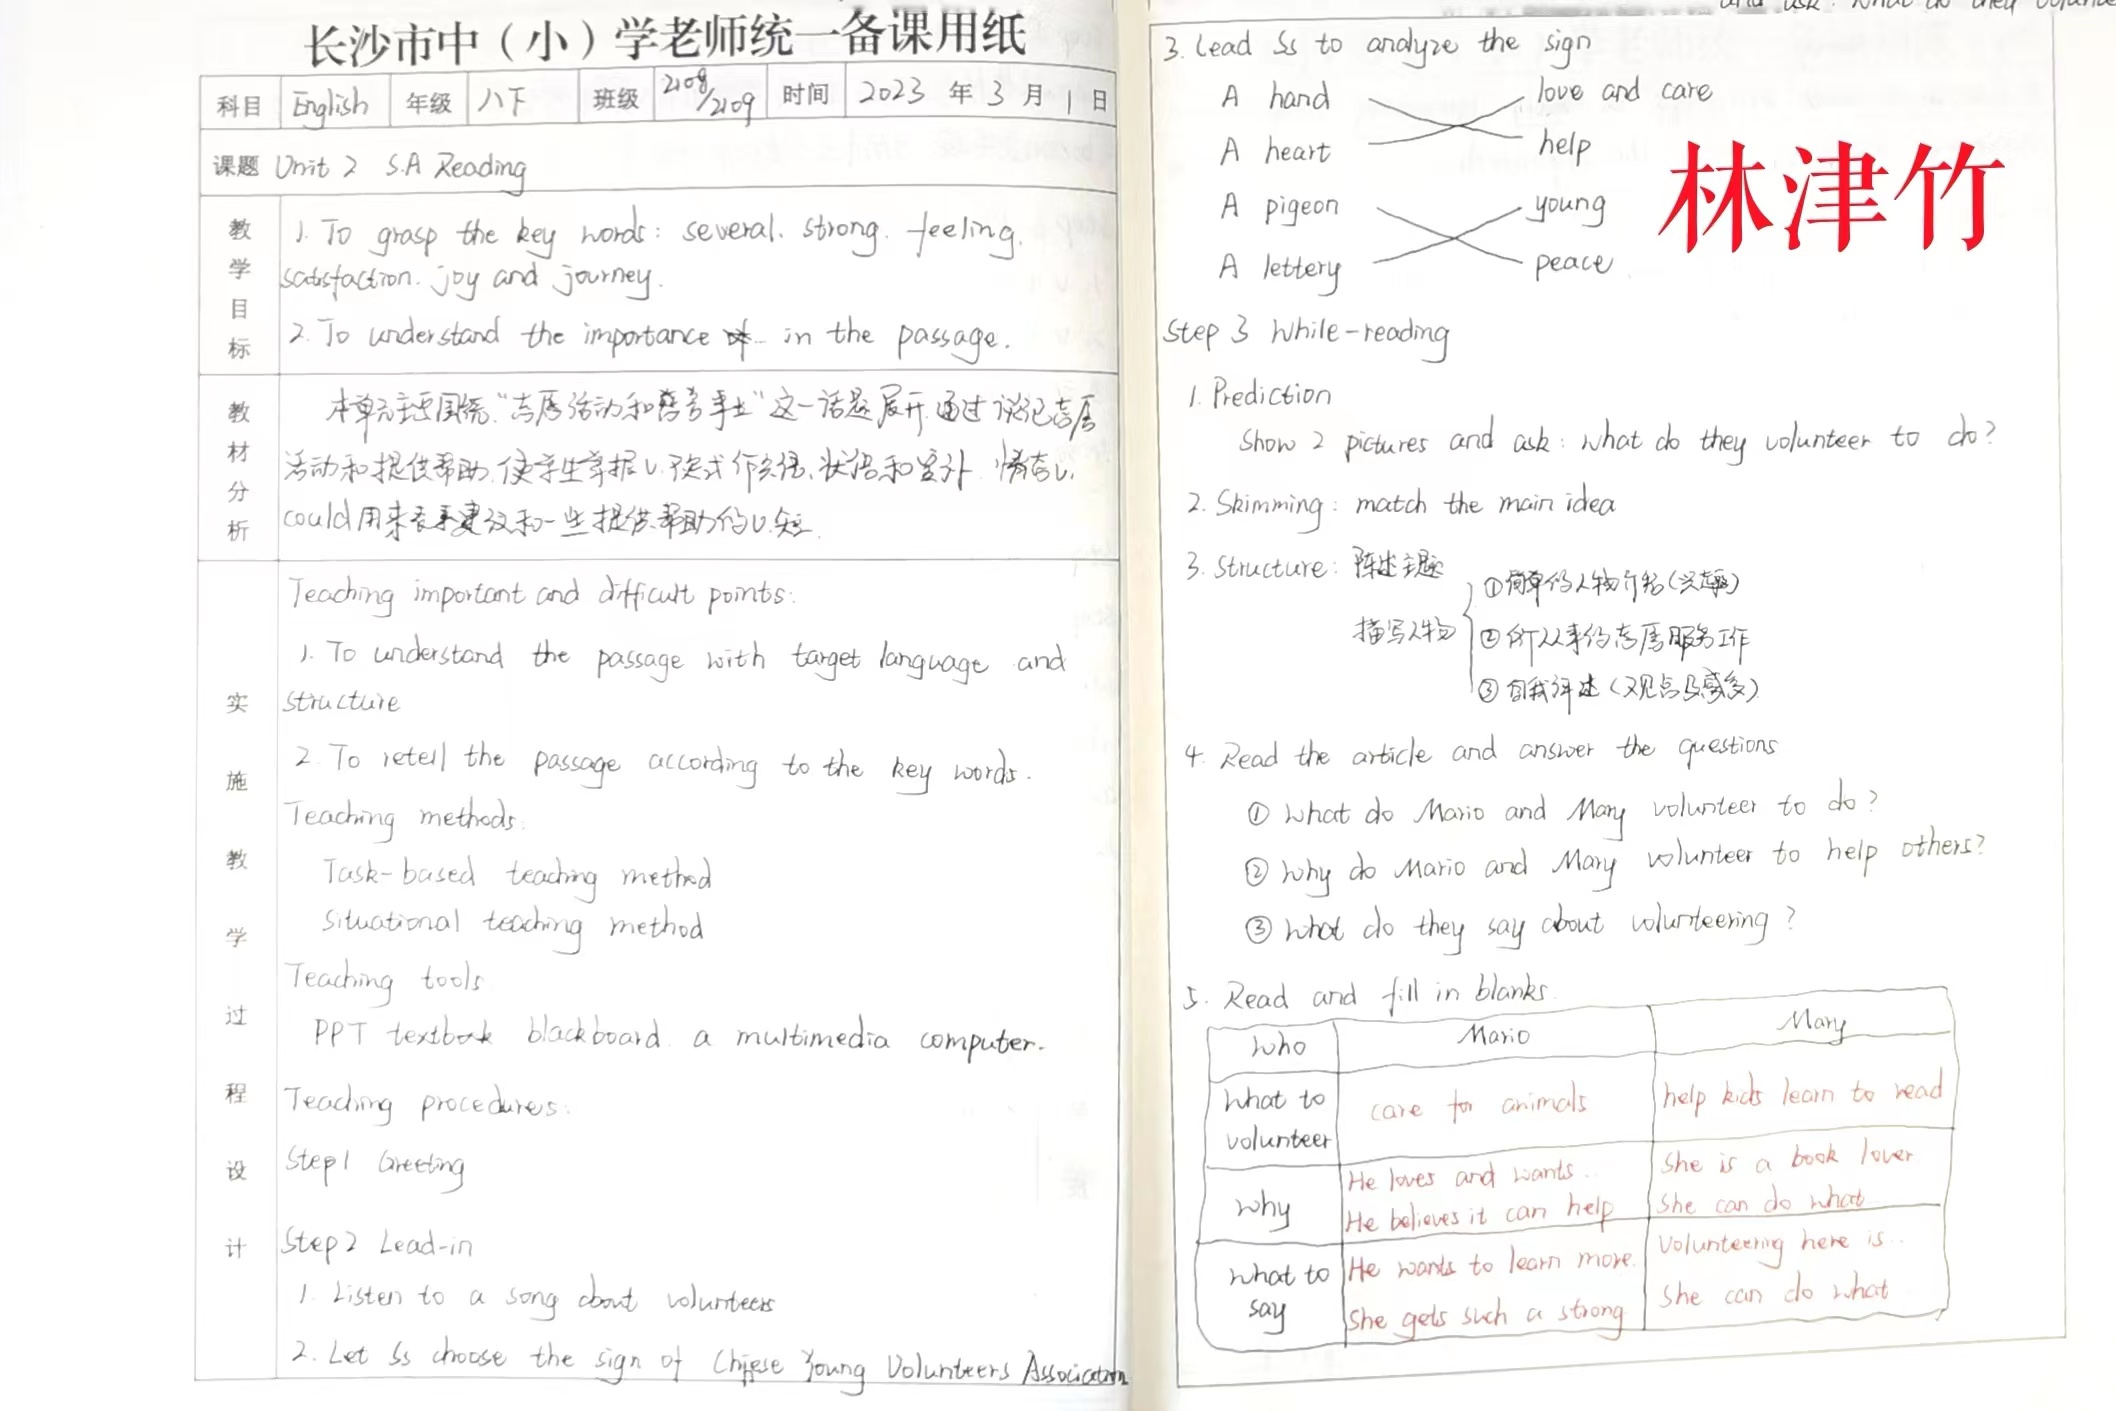 长沙市中（小）学老师统一备课用纸
科目 English 年级 八下 班级 2108/2109 时间 2023 年 3 月 1 日
课题 Unit 2 S.A Reading
教学目标
1. To grasp the key words: several. strong. feeling.
satisfaction. joy and journey.
2. To understand the importance in the passage.
教材分析
本单元主题围绕"志愿活动和慈善事业"这一话题展开.通过谈论志愿
活动和提供帮助,使学生掌握v.形式作宾语、状语和宾补.情态v.
could用来表示建议和一些提供帮助的v.短.
实施教学过程设计
Teaching important and difficult points:
1. To understand the passage with target language and
structure
2. To retell the passage according to the key words.
Teaching methods:
Task-based teaching method
Situational teaching method
Teaching tools
PPT textbook blackboard. a multimedia computer.
Teaching procedures:
Step1 Greeting
Step2 Lead-in
1. Listen to a song about volunteers
2. Let Ss choose the sign of Chinese Young Volunteers Association
and ask: What do they volunteer
3. Lead Ss to analyze the sign
A hand love and care
A heart help
A pigeon young
A lettery peace
林津竹
Step 3 While-reading
1. Prediction
Show 2 pictures and ask: what do they volunteer to do?
2. Skimming: match the main idea
3. Structure: 陈述主题
描写人物
①简单的人物介绍(兴趣)
②所从事的志愿服务工作
③自我评述(观点及感受)
4. Read the article and answer the questions
① What do Mario and Mary volunteer to do?
② Why do Mario and Mary volunteer to help others?
③ What do they say about volunteering?
5. Read and fill in blanks.
who Mario Mary
what to volunteer care for animals help kids learn to read
why He loves and wants.. She is a book lover
He believes it can help She can do what
what to say He wants to learn more. Volunteering here is..
She gets such a strong She can do what